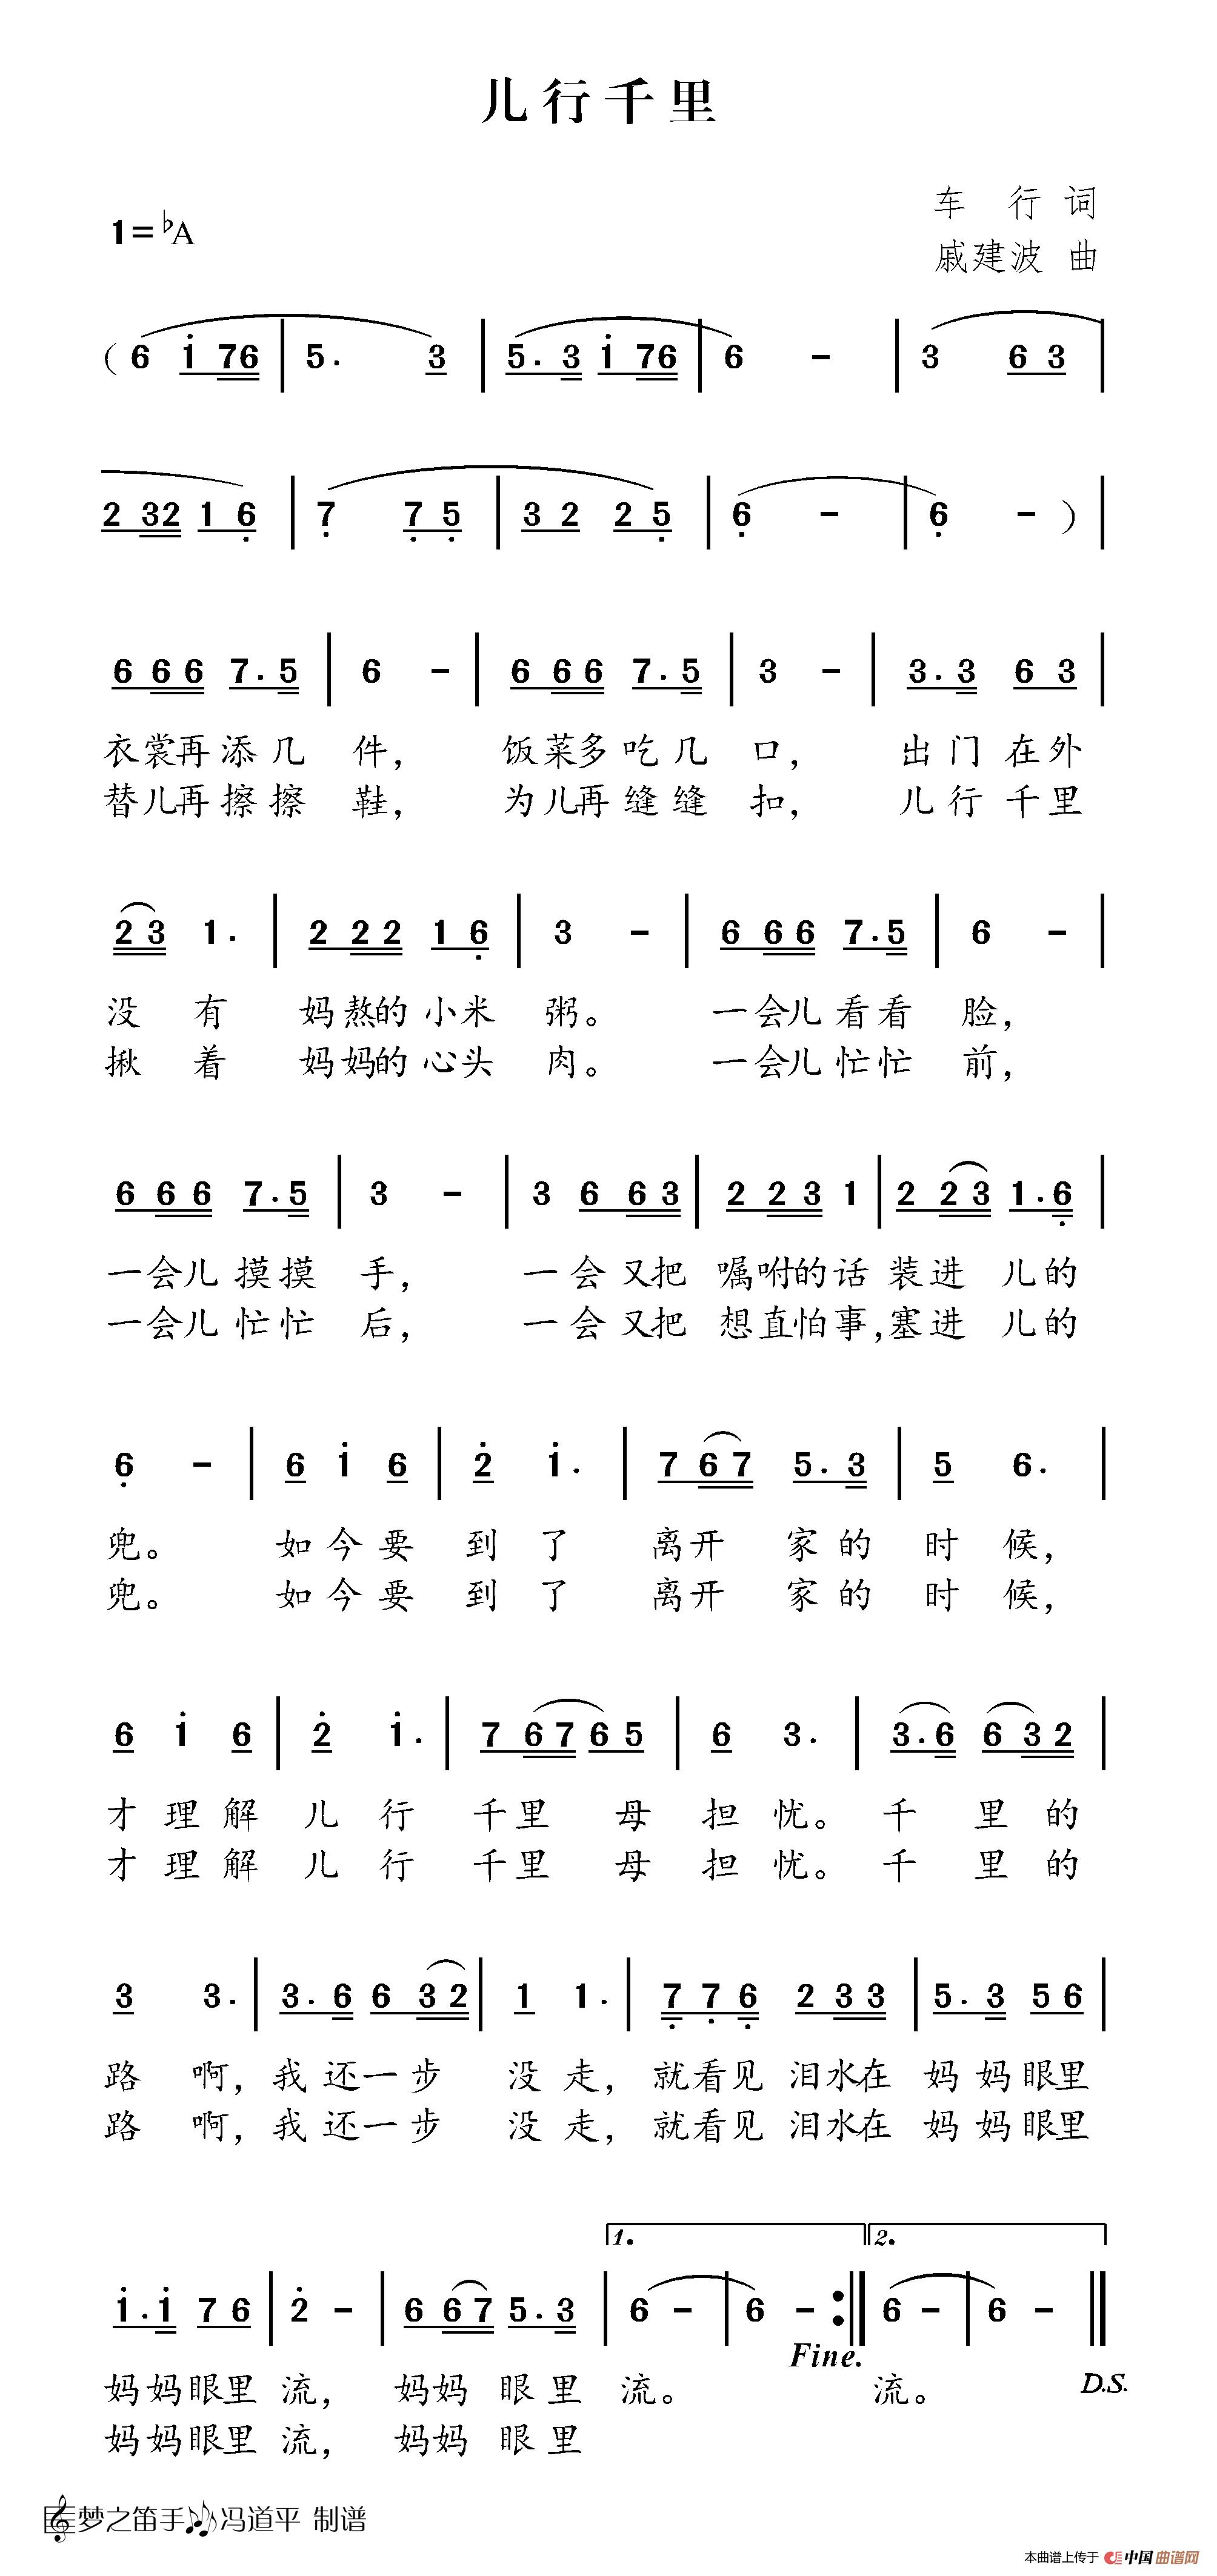 儿行千里
车 行 词
1=♭A
戚建波 曲
( 6 i 76 | 5. 3 | 5. 3 i 76 | 6 - | 3 6 3 |
2 32 1 6̣ | 7̣ 7̣ 5̣ | 3 2 2 5̣ | 6̣ - | 6̣ - ) |
6 6 6 7. 5 | 6 - | 6 6 6 7. 5 | 3 - | 3. 3 6 3 |
衣裳再添几 件, 饭菜多吃几 口, 出门在外
替儿再擦擦 鞋, 为儿再缝缝 扣, 儿行千里
2 3 1. | 2 2 2 1 6̣ | 3 - | 6 6 6 7. 5 | 6 - |
没 有 妈熬的小米 粥。 一会儿看看 脸,
揪 着 妈妈的心头 肉。 一会儿忙忙 前,
6 6 6 7. 5 | 3 - | 3 6 6 3 | 2 2 3 1 | 2 2 3 1. 6̣ |
一会儿摸摸 手, 一会又把 嘱咐的话 装进 儿的
一会儿忙忙 后, 一会又把 想直怕事,塞进 儿的
6̣ - | 6 i 6 | 2̇ i. | 7 6 7 5. 3 | 5 6. |
兜。 如今要 到了 离开 家的 时候,
兜。 如今要 到了 离开 家的 时候,
6 i 6 | 2̇ i. | 7 6 7 6 5 | 6 3. | 3. 6 6 3 2 |
才理解 儿行 千里 母 担忧。 千 里的
才理解 儿行 千里 母 担忧。 千 里的
3 3. | 3. 6 6 3 2 | 1 1. | 7̣ 7̣ 6̣ 2 3 3 | 5. 3 5 6 |
路 啊, 我还一步 没走, 就看见 泪水在 妈妈眼里
路 啊, 我还一步 没走, 就看见 泪水在 妈妈眼里
1. 2.
i. i 7 6 | 2̇ - | 6 6 7 5. 3 | 6 - | 6 - :‖ 6 - | 6 - ‖
Fine.
妈妈眼里 流, 妈妈 眼里 流。 流。 D.S.
妈妈眼里 流, 妈妈 眼里
梦之笛手 冯道平 制谱
本曲谱上传于 中国曲谱网